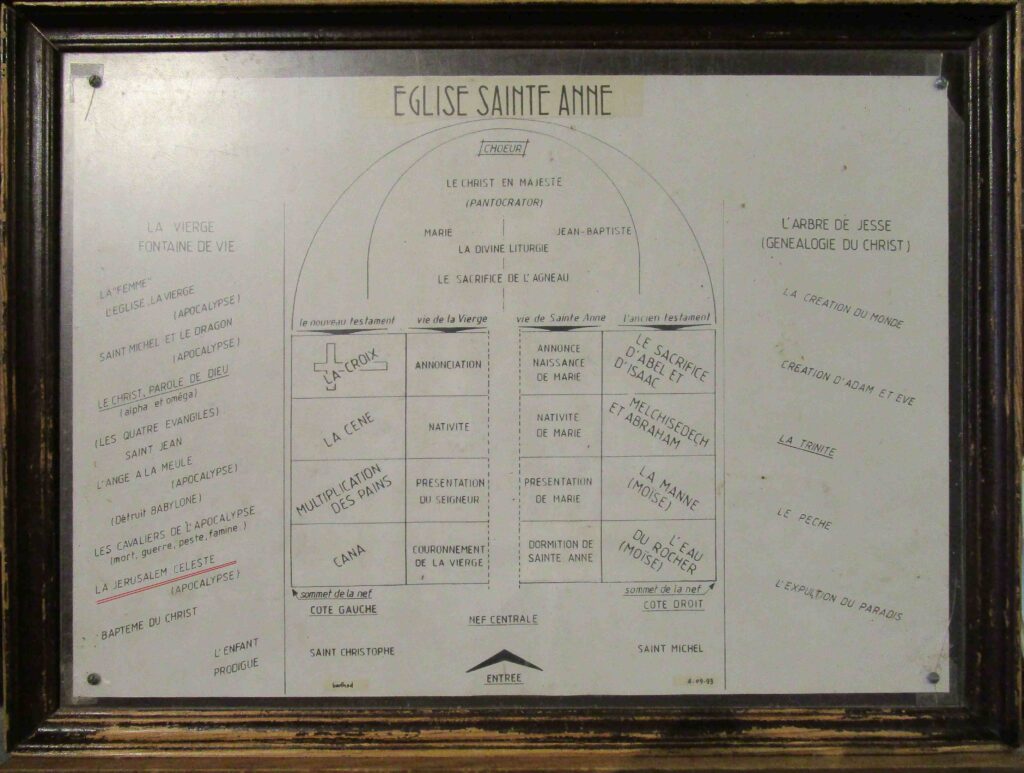 EGLISE SAINTE ANNE
CHOEUR
LE CHRIST EN MAJESTE
(PANTOCRATOR)
MARIE
JEAN-BAPTISTE
LA DIVINE LITURGIE
LE SACRIFICE DE L'AGNEAU
LA VIERGE
FONTAINE DE VIE
LA "FEMME"
L'EGLISE. LA VIERGE
(APOCALYPSE)
SAINT MICHEL ET LE DRAGON
(APOCALYPSE)
LE CHRIST, PAROLE DE DIEU
(alpha et oméga)
(LES QUATRE EVANGILES)
SAINT JEAN
L'ANGE A LA MEULE
(APOCALYPSE)
(Détruit BABYLONE)
LES CAVALIERS DE L'APOCALYPSE
(mort, guerre, peste, famine.)
LA JERUSALEM CELESTE
(APOCALYPSE)
BAPTEME DU CHRIST
L'ENFANT
PRODIGUE
le nouveau testament
vie de la Vierge
vie de Sainte Anne
l'ancien testament
LA CROIX
ANNONCIATION
ANNONCE
NAISSANCE
DE MARIE
LE SACRIFICE
D'ABEL ET
D'ISAAC
LA CENE
NATIVITE
NATIVITE
DE MARIE
MELCHISEDECH
ET ABRAHAM
MULTIPLICATION
DES PAINS
PRESENTATION
DU SEIGNEUR
PRESENTATION
DE MARIE
LA MANNE
(MOISE)
CANA
COURONNEMENT
DE LA VIERGE
DORMITION DE
SAINTE ANNE
L'EAU
DU ROCHER
(MOISE)
sommet de la nef
COTE GAUCHE
sommet de la nef
COTE DROIT
NEF CENTRALE
SAINT CHRISTOPHE
SAINT MICHEL
ENTREE
L'ARBRE DE JESSE
(GENEALOGIE DU CHRIST)
LA CREATION DU MONDE
CREATION D'ADAM ET EVE
LA TRINITE
LE PECHE
L'EXPULTION DU PARADIS